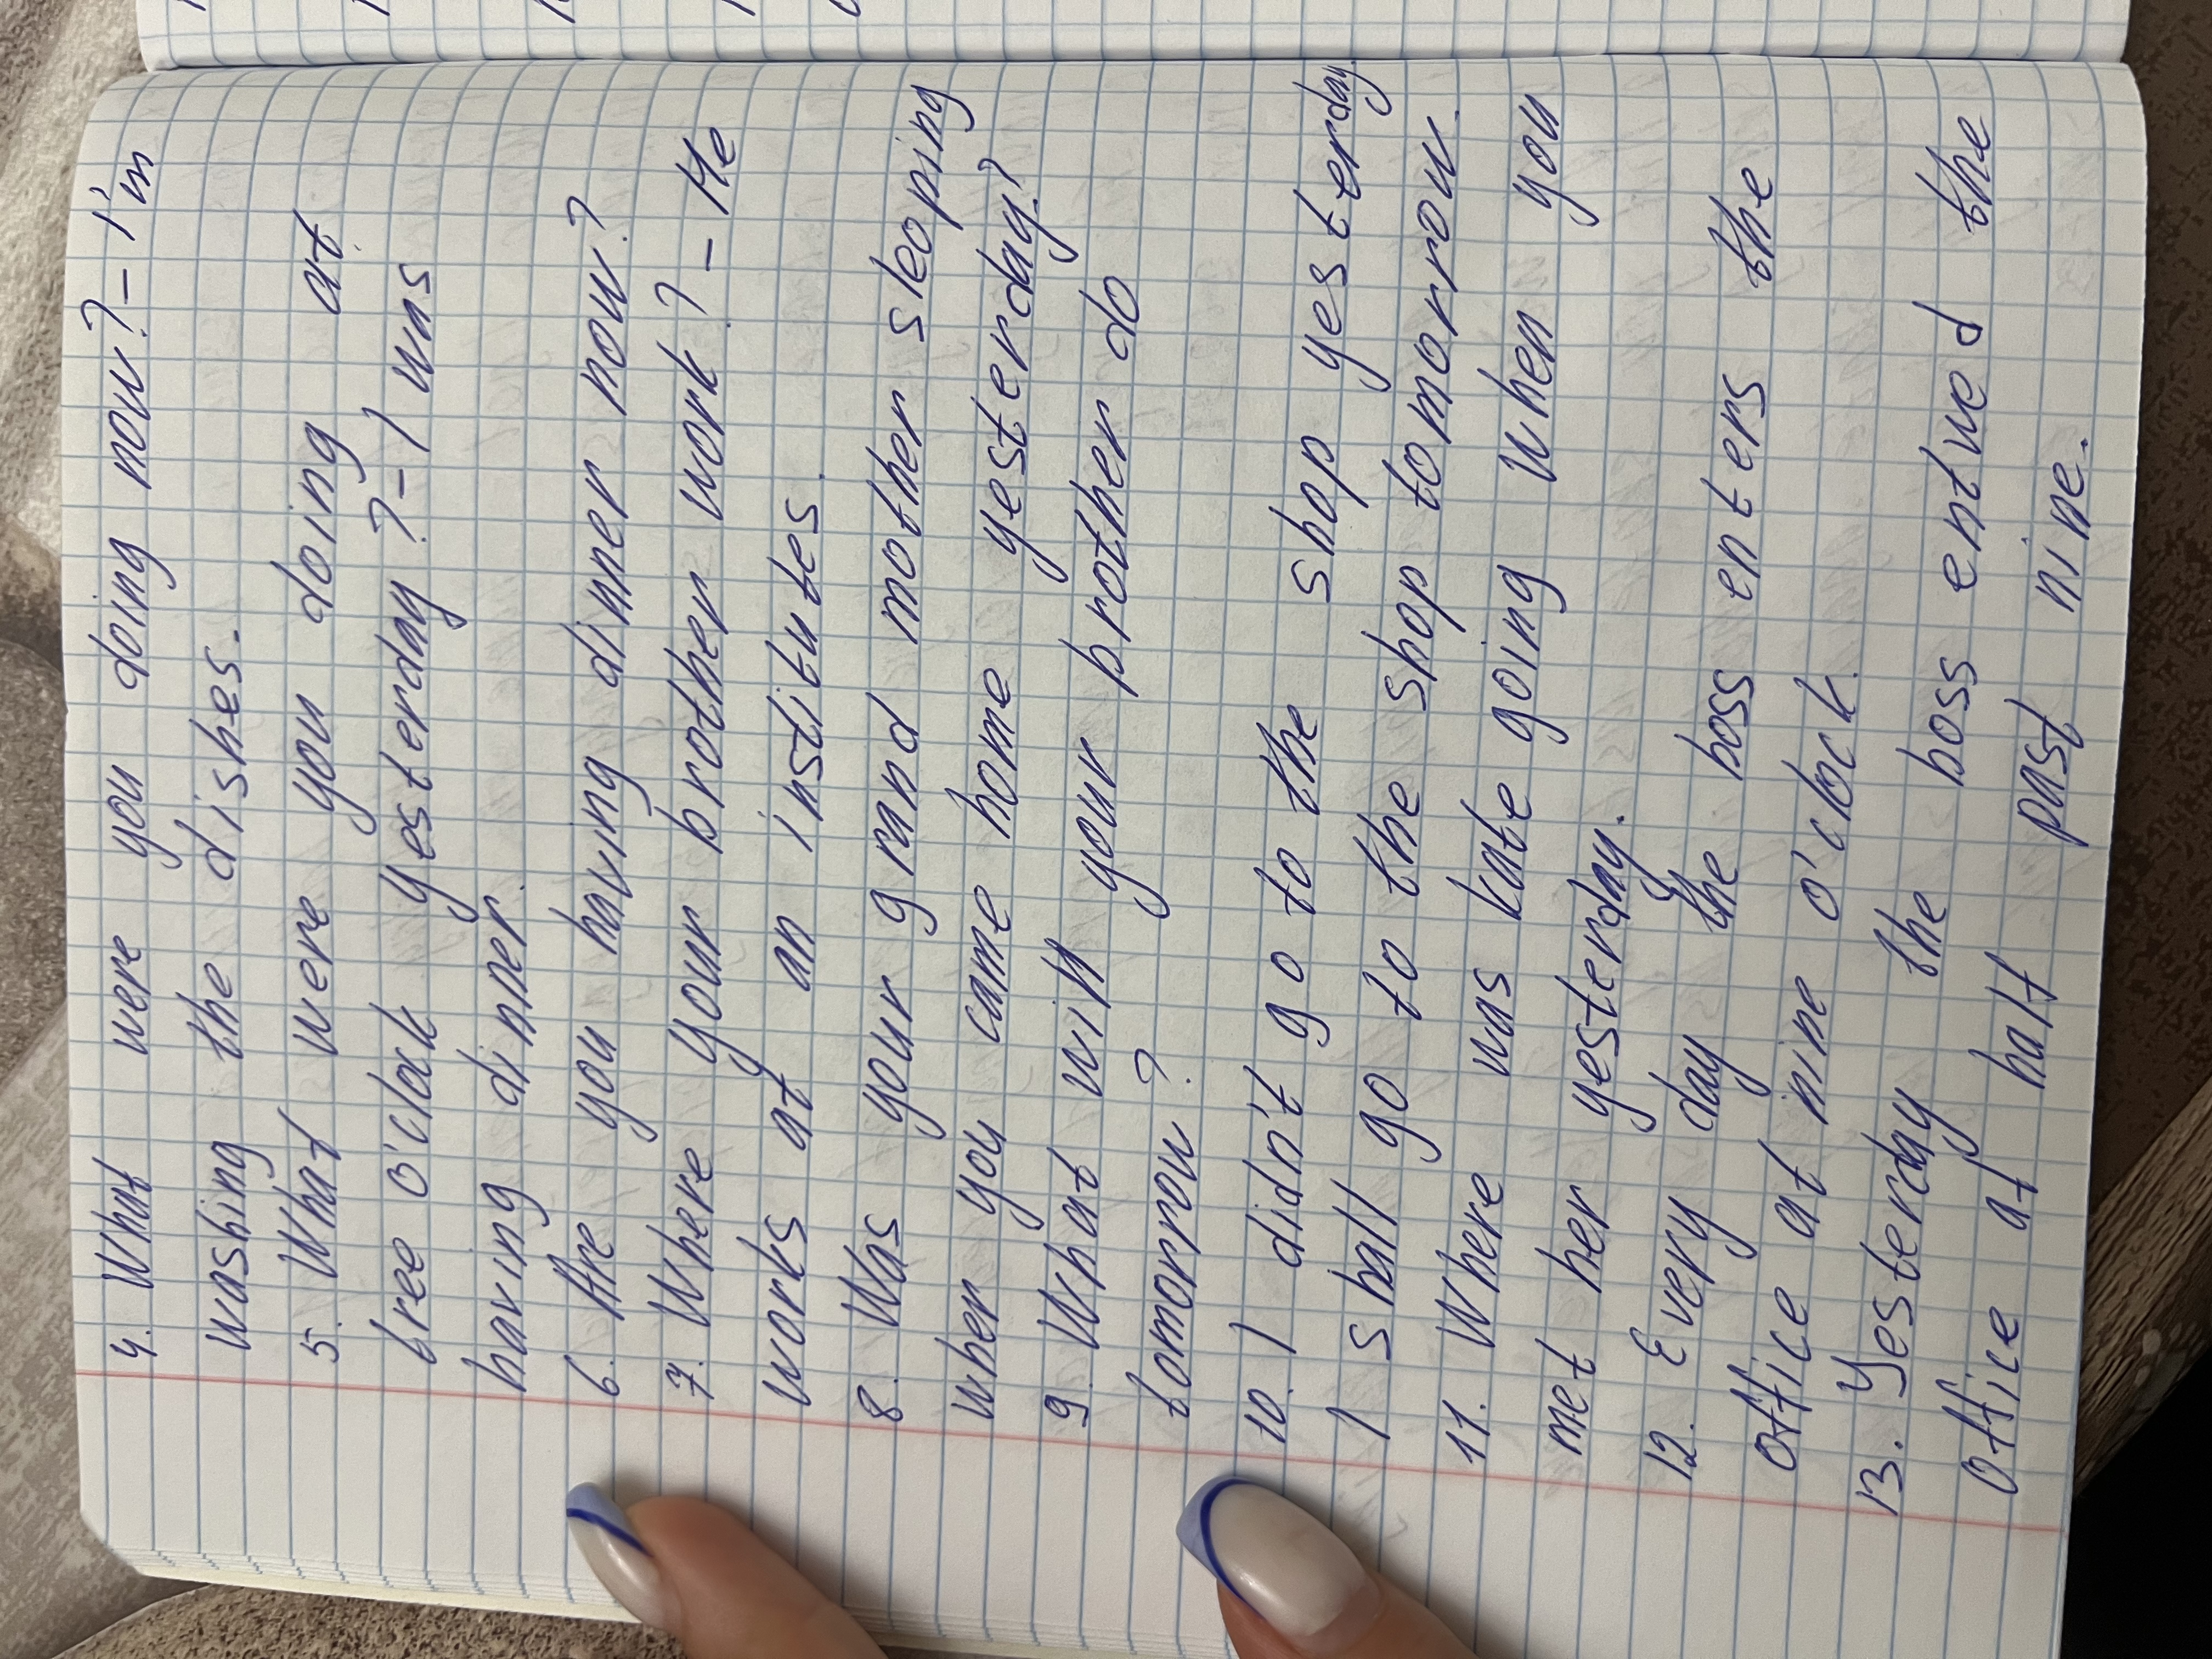 4. What were you doing now? - I'm
washing the dishes.
5. What were you doing at
tree o'clock yesterday? - I was
having dinner.
6. Are you having dinner now?
7. Where your brother work? - He
works at an institutes.
8. Was your grand mother sleoping
wher you came home yesterday?
9. What will your brother do
tomorrow?
10. I didn't go to the shop yesterday.
I shall go to the shop tomorrow.
11. Where was kate going when you
met her yesterday.
12. Every day the boss enters the
office at nine o'clock.
13. Yesterday the boss entwed the
office at half past nine.